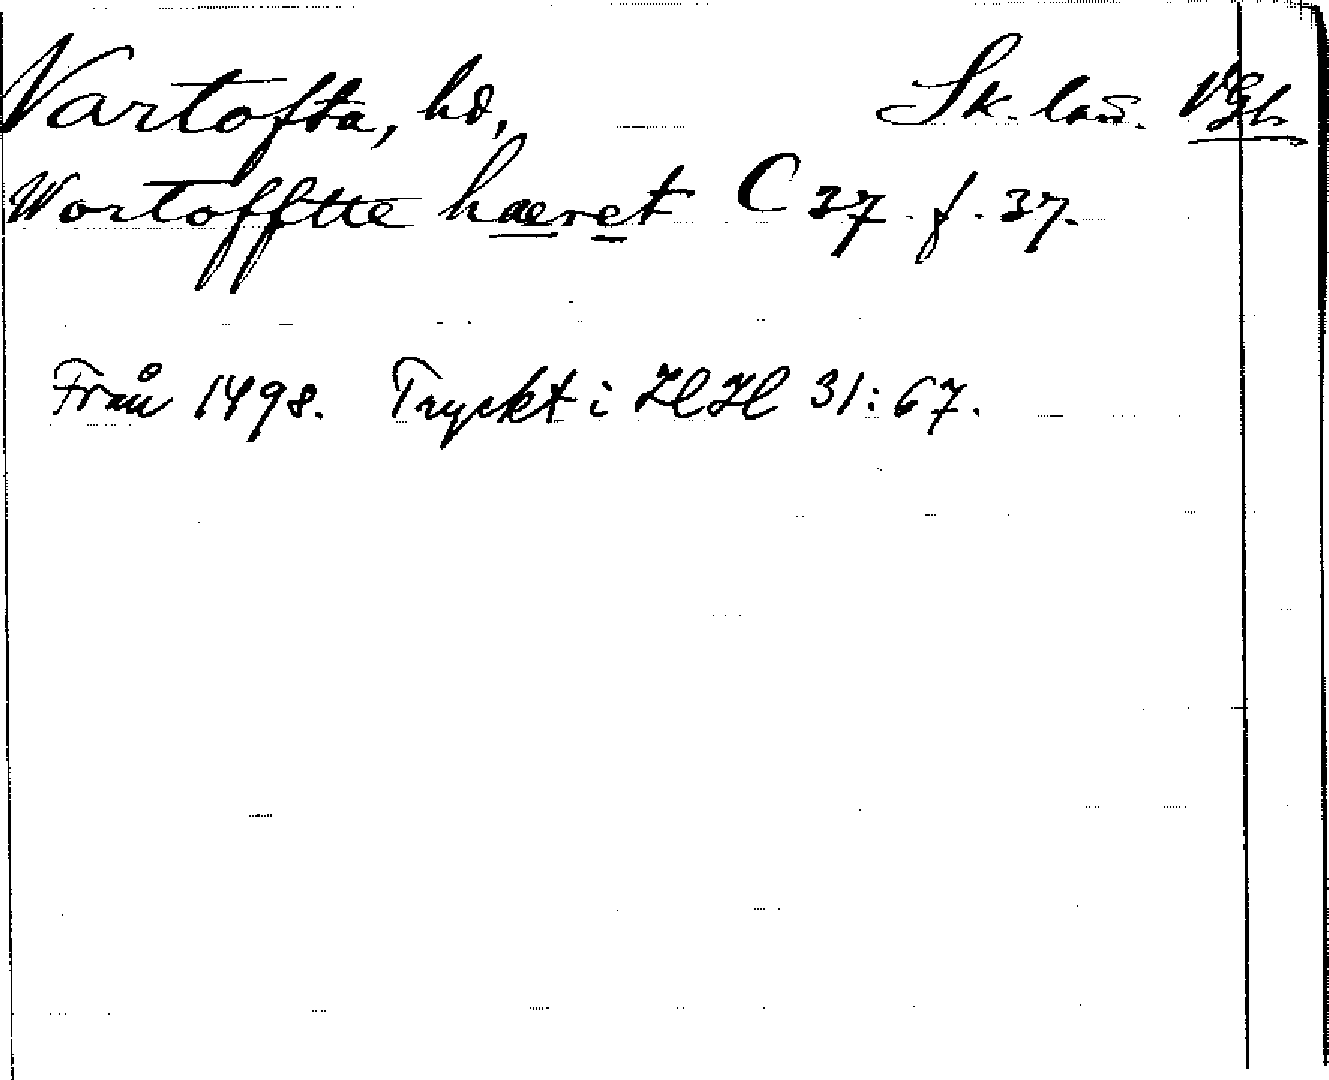 Vartofta, hd, Sk. län. Vgl.
Wortofftte haeret C 27 f. 37.
Från 1498. Tryckt i HH 31:67.